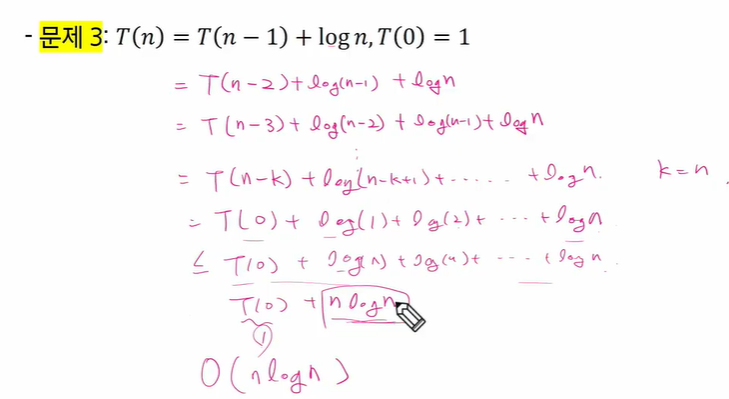 - 문제 3: T(n) = T(n − 1) + log n, T(0) = 1
= T(n-2) + log(n-1) + logn
= T(n-3) + log(n-2) + log(n-1) + logn
⋮
= T(n-k) + log(n-k+1) + ⋯⋯ + logn. k=n
= T(0) + log(1) + log(2) + ⋯ + logn
≤ T(0) + log(n) + log(n) + ⋯ + logn
T(0) + nlogn
1
O(nlogn)